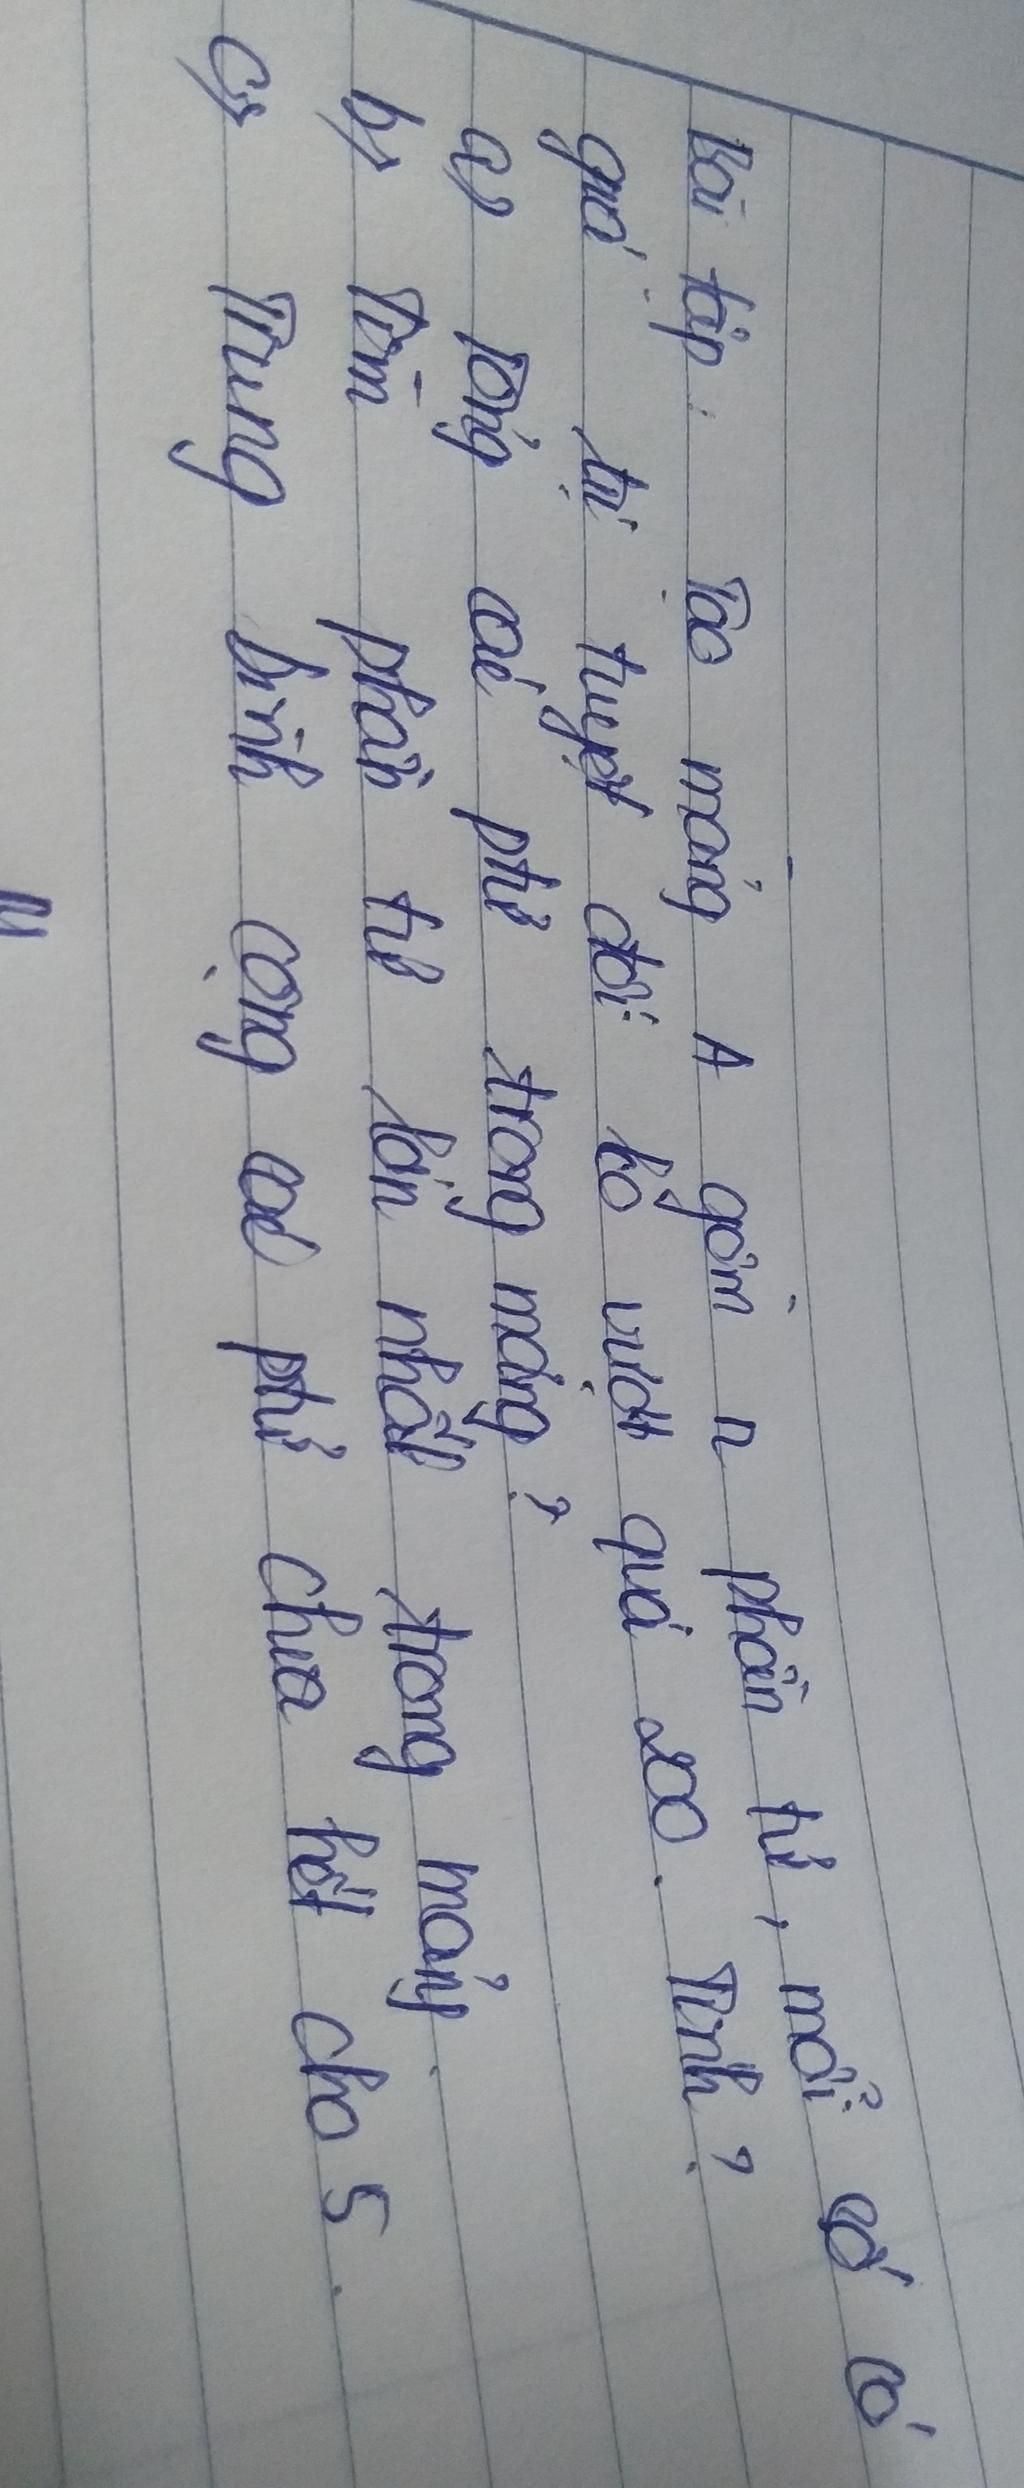 Bài tập: Tạo mảng A gồm n phần tử, mỗi số có
giá trị tuyệt đối ko vượt quá 200. Tính?
a) Tổng các ptử trong mảng?
b) Tìm phần tử lớn nhất trong mảng.
c) Trung bình cộng các ptử chia hết cho 5.